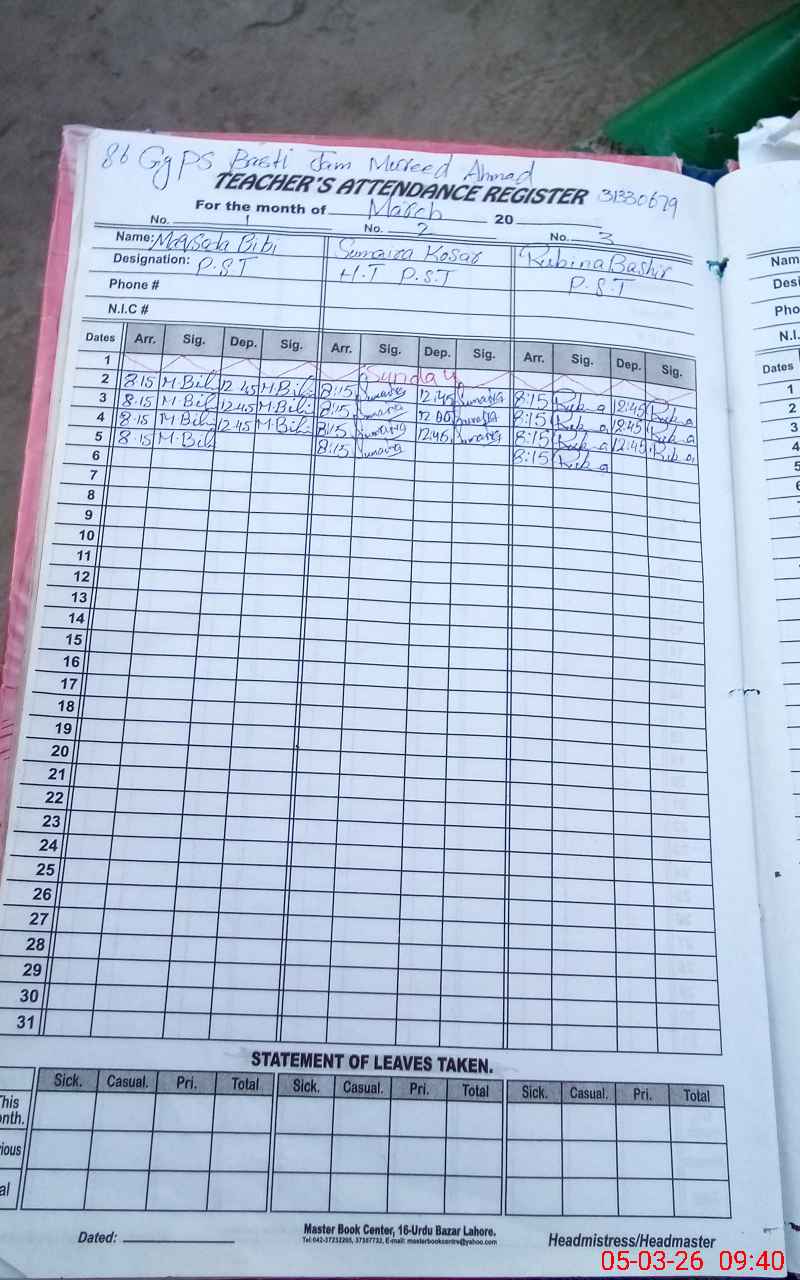 86 GgPS Basti Jam Mureed Ahmad
TEACHER'S ATTENDANCE REGISTER 31330679
For the month of March 20
No. 1 No. 2 No. 3
Name: Maqsoda Bibi Sumaira Kosar Rubina Bashir
Designation: P.S.T H.T P.S.T P.S.T
Phone #
N.I.C #
Dates Arr. Sig. Dep. Sig. Arr. Sig. Dep. Sig. Arr. Sig. Dep. Sig.
1 Sunday
2 8:15 M.Bibi 12:45 M.Bibi 8:15 Sumaira 12:45 Sumaira 8:15 Rub a 12:45 Rub a
3 8:15 M.Bibi 12:45 M.Bibi 8:15 Sumaira 12:00 Sumaira 8:15 Rub a 12:45 Rub a
4 8:15 M.Bibi 12:45 M.Bibi 8:15 Sumaira 12:45 Sumaira 8:15 Rub a 12:45 Rub a
5 8:15 M.Bibi 8:15 Sumaira 8:15 Rub a
6
7
8
9
10
11
12
13
14
15
16
17
18
19
20
21
22
23
24
25
26
27
28
29
30
31
STATEMENT OF LEAVES TAKEN.
Sick. Casual. Pri. Total Sick. Casual. Pri. Total Sick. Casual. Pri. Total
This
nth.
ious
al
Dated:
Master Book Center, 16-Urdu Bazar Lahore.
Headmistress/Headmaster
Nam
Desi
Pho
N.I.
Dates
1
2
3
4
5
6
7
8
9
10
11
12
13
14
15
16
17
18
19
20
21
22
05-03-26 09:40